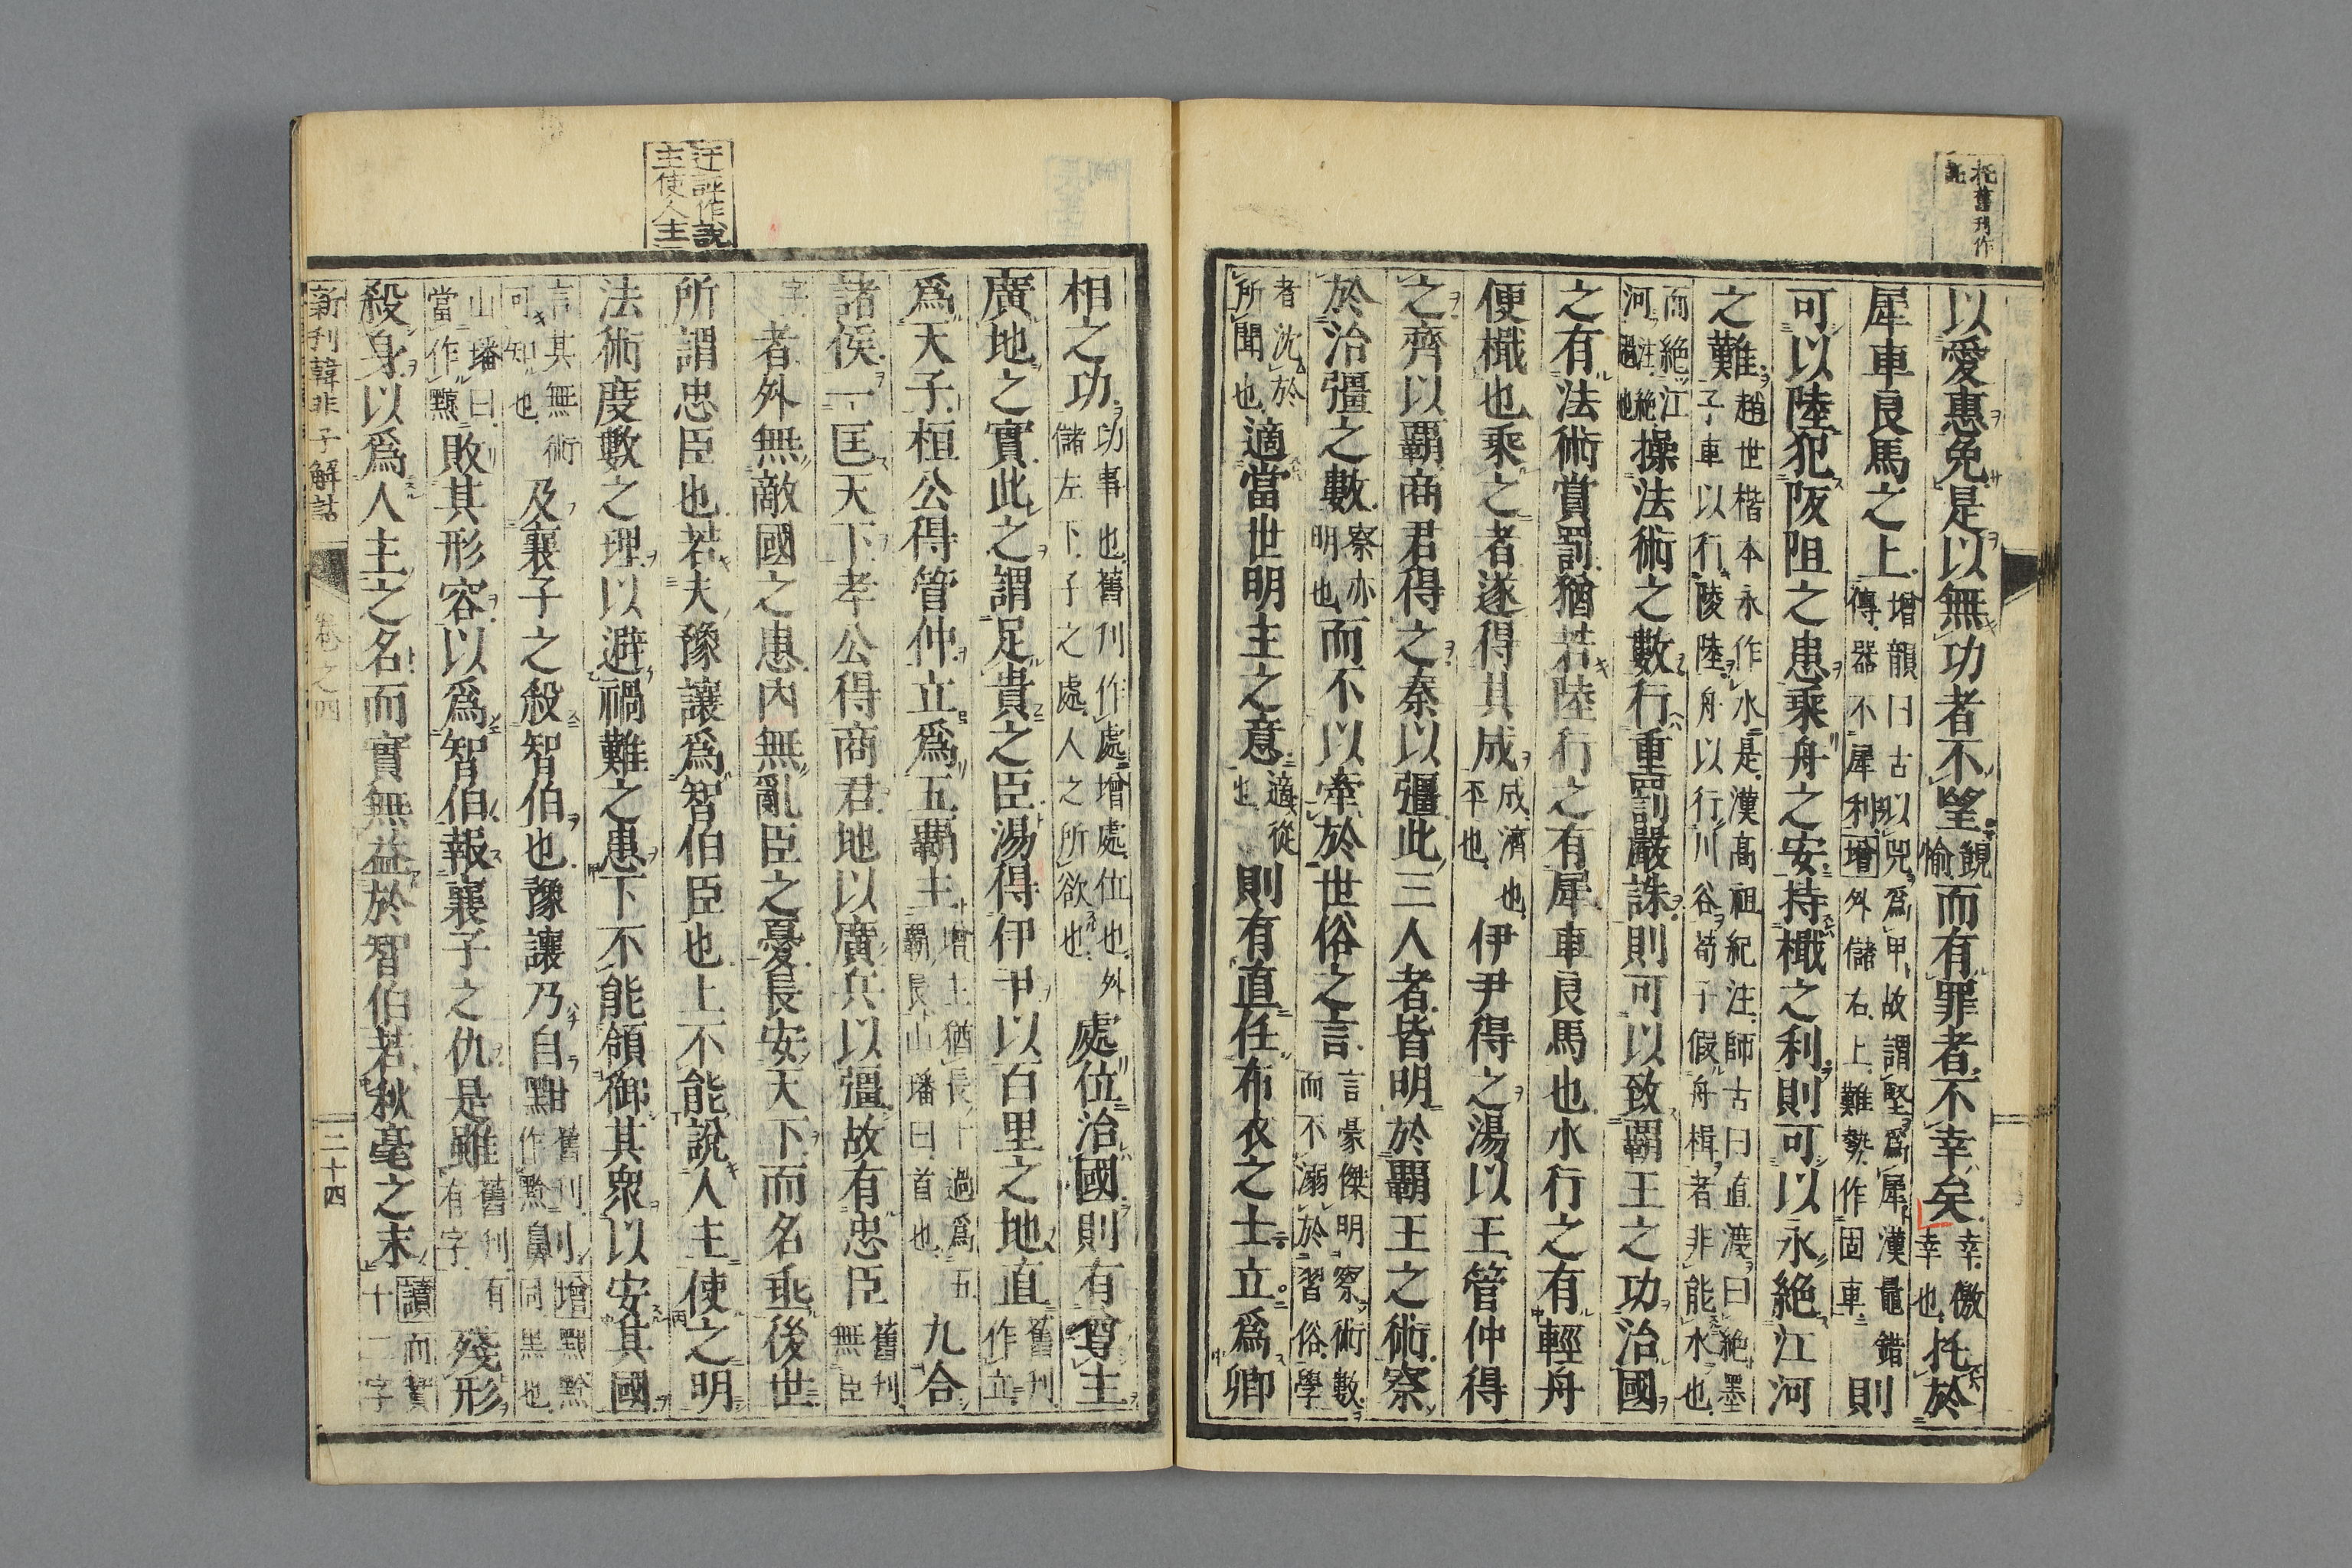 托舊刊作
託
以愛惠免是以無功者不望覬愉而有罪者不幸矣幸儌幸也托於
犀車良馬之上增韻曰古以兕爲甲故謂堅爲犀漢鼂錯傳器不犀利增外儲右上難勢作固車則
可以陸犯阪阻之患乘舟之安持檝之利則可以永絕江河
之難趙世楷本永作水是漢高祖紀注師古曰直渡曰絕墨子車以行陵陸舟以行川谷荀子假舟楫者非能水也
而絕江河注絕過也操法術之數行重罰嚴誅則可以致霸王之功治國
之有法術賞罰猶若陸行之有犀車良馬也水行之有輕舟
便檝也乘之者遂得其成成濟也平也伊尹得之湯以王管仲得
之齊以霸商君得之秦以彊此三人者皆明於霸王之術察
於治彊之數察亦明也而不以牽於世俗之言言豪傑明察術數而不溺於習俗學
者沈於所聞也適當世明主之意適從也則有直任布衣之士立爲卿
迂評作說
主使人主
相之功功事也舊刊作處增處位也外儲左下子之處人之所欲也處位治國則有尊主
廣地之實此之謂足貴之臣湯得伊尹以百里之地直舊刊作立
爲天子桓公得管仲立爲五霸主增主猶長十過爲五霸長山璠曰首也九合
諸侯一匡天下孝公得商君地以廣兵以彊故有忠臣舊刊無臣
字者外無敵國之患內無亂臣之憂長安天下而名垂後世
所謂忠臣也若夫豫讓爲智伯臣也上不能說人主使之明
法術度數之理以避禍難之患下不能領御其衆以安其國
言其無術可知也及襄子之殺智伯也豫讓乃自黚舊刊作黔劓增黚黔同黑也
山璠曰當作黥敗其形容以爲智伯報襄子之仇是雖舊刊有有字殘形
殺身以爲人主之名而實無益於智伯若秋毫之末讀而實十二字
新刊韓非子解詁 卷之四 二十四